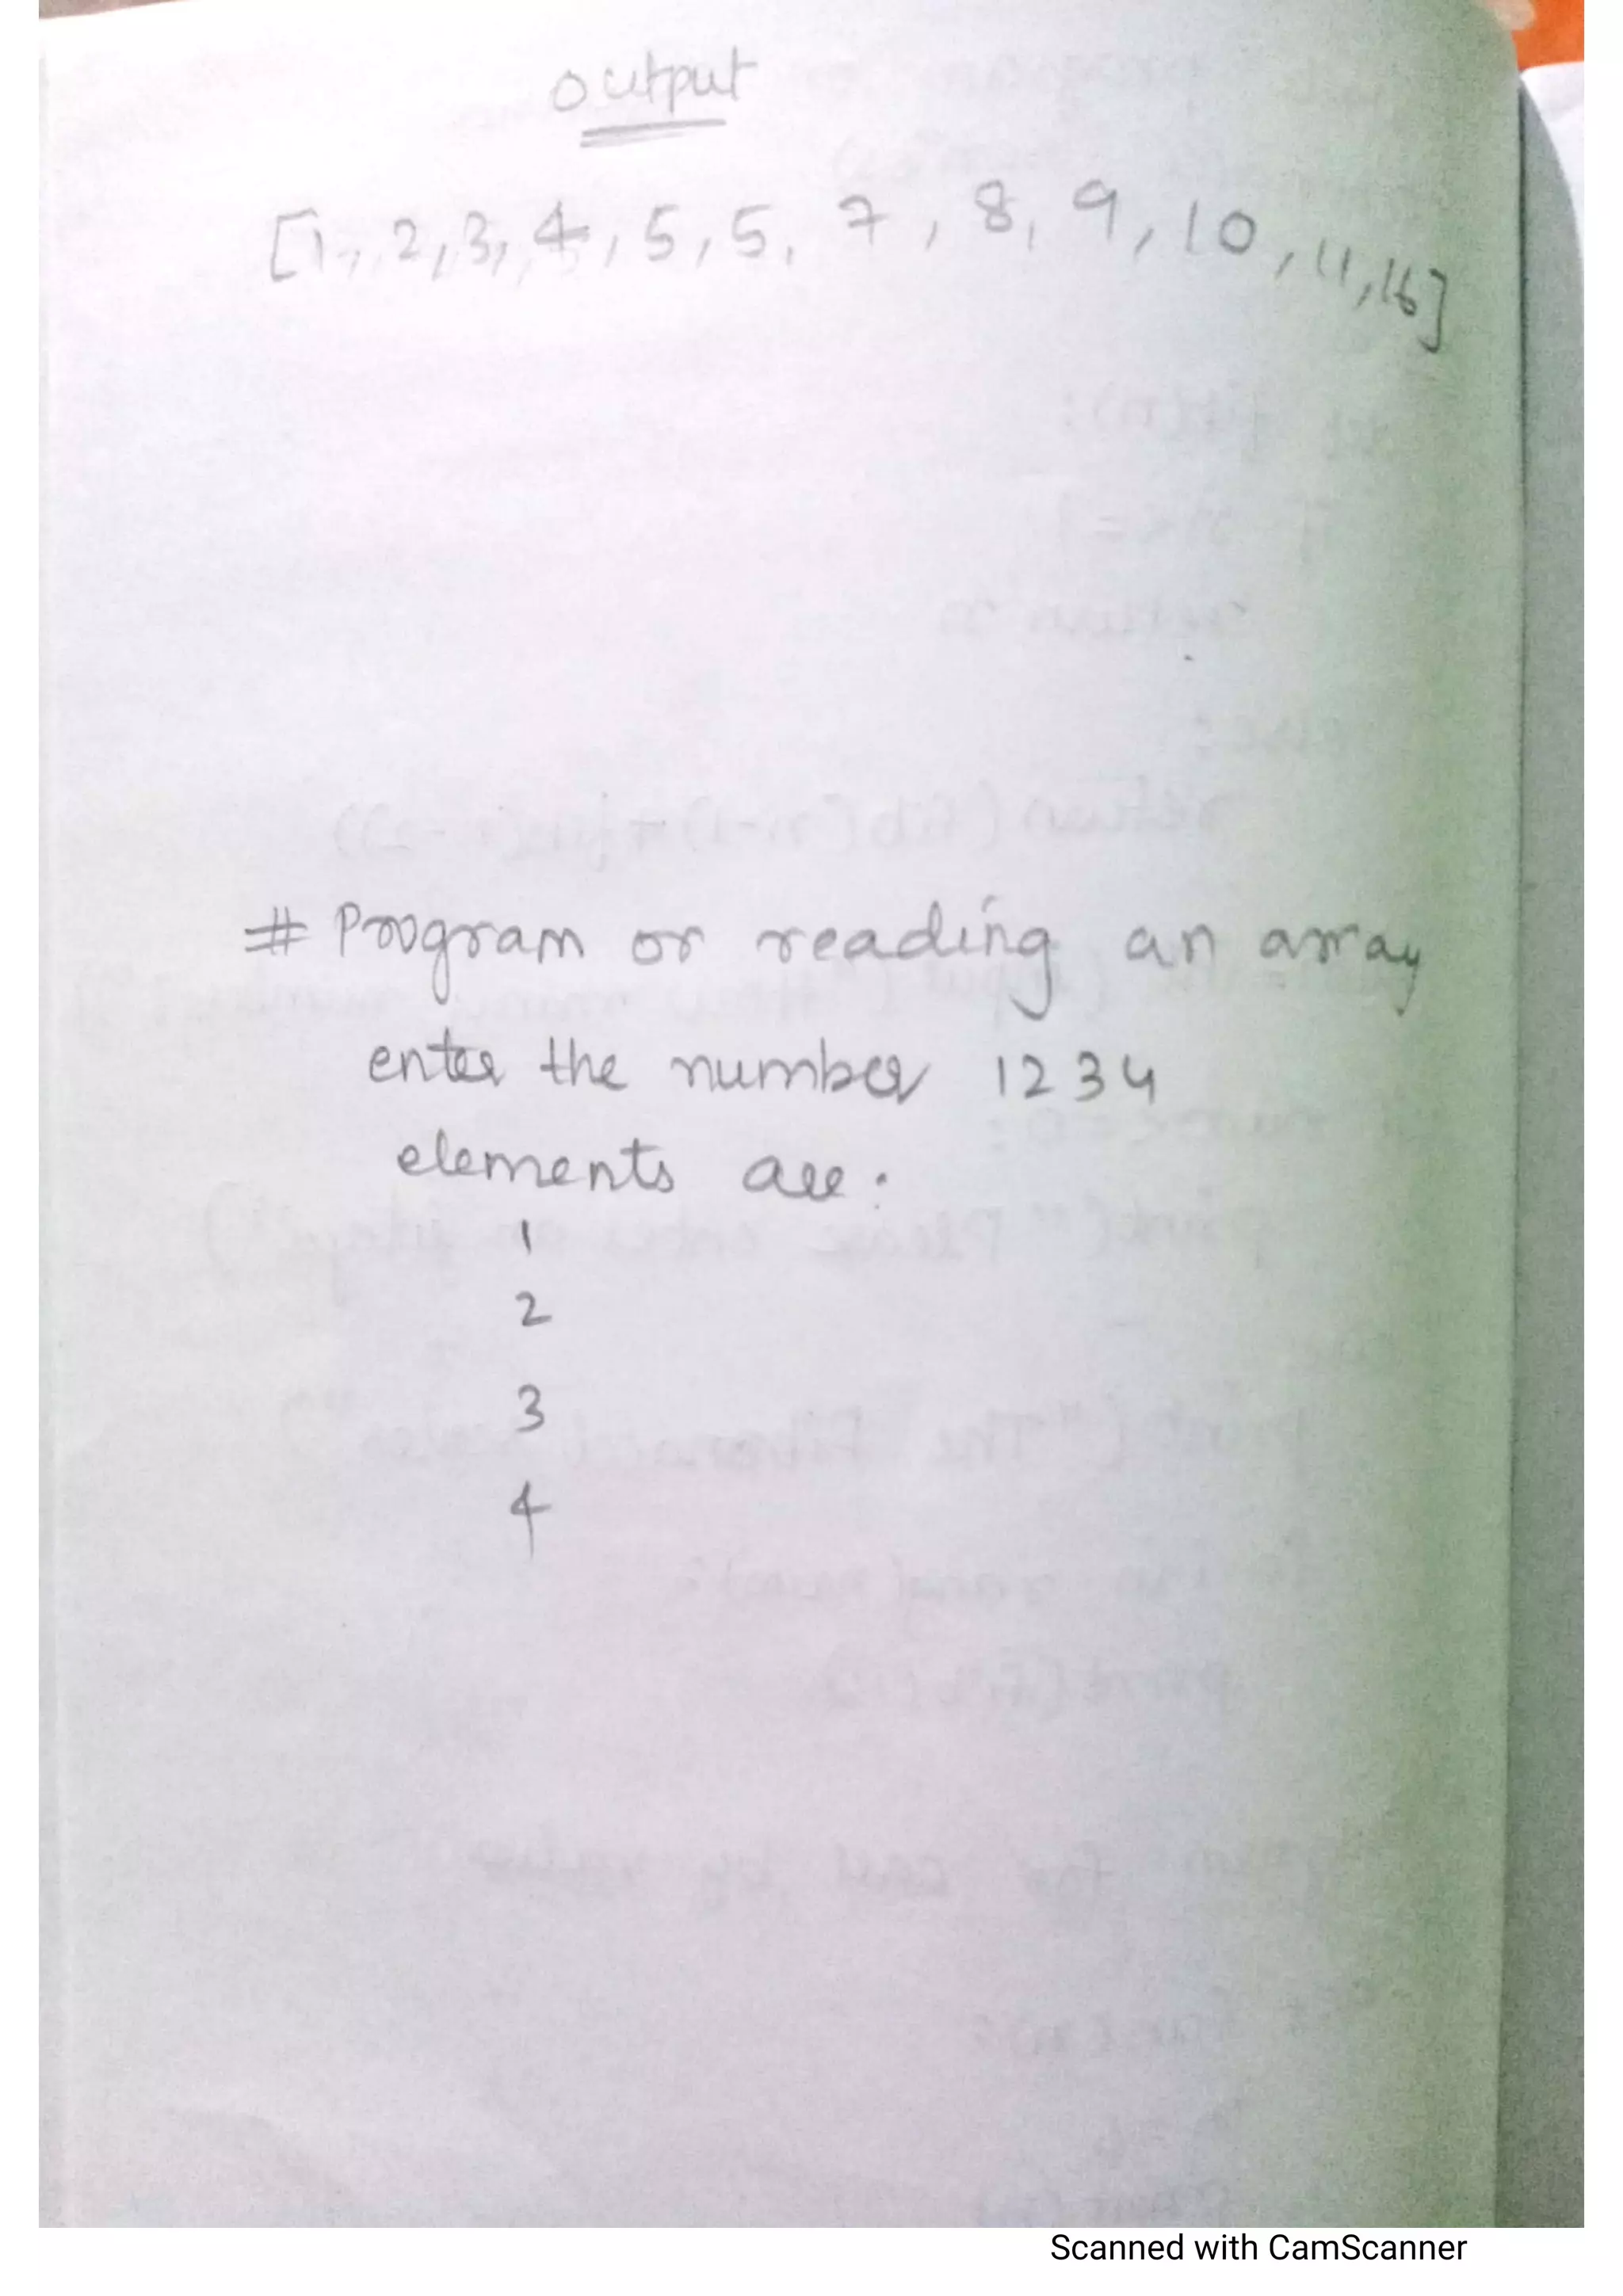 output
[1, 2, 3, 4, 5, 5, 7, 8, 9, 10, 11, 16]
# Program or reading an array
enter the number 1234
elements are:
1
2
3
4
Scanned with CamScanner